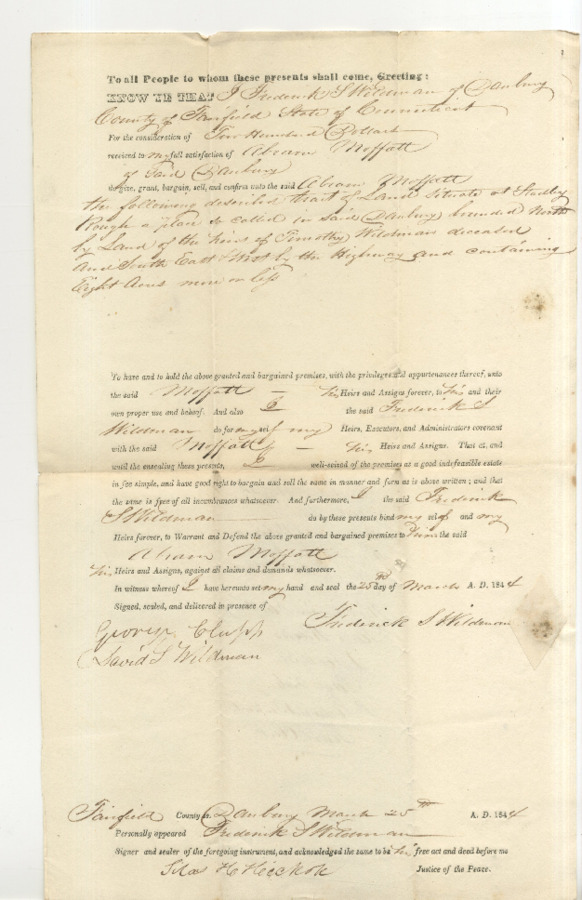 To all People to whom these presents shall come, Greeting:
KNOW YE THAT I Frederick S Wildman of Danbury
County of Fairfield State of Connecticut
For the consideration of Hundred Dollars
received to my full satisfaction of Abram Moffatt
of said Danbury
do give, grant, bargain, sell, and confirm unto the said Abram Moffatt
the following described tract of Land situate at
Rough a place so called in said Danbury bounded North
by Land of the heirs of Timothy Wildman deceased
and South East & West by the Highway and containing
Eight Acres more or less
To have and to hold the above granted and bargained premises, with the privileges and appurtenances thereof, unto
the said Moffatt his Heirs and Assigns forever, to his and their
own proper use and behoof. And also I the said Frederick S
Wildman do for my self my Heirs, Executors, and Administrators covenant
with the said Moffatt his Heirs and Assigns. That at, and
until the ensealing these presents, I well-seized of the premises as a good indefeasible estate
in fee simple, and have good right to bargain and sell the same in manner and form as is above written; and that
the same is free of all incumbrances whatsoever. And furthermore, I the said Frederick
S Wildman do by these presents bind my self and my
Heirs forever, to Warrant and Defend the above granted and bargained premises to him the said
Abram Moffatt
his Heirs and Assigns, against all claims and demands whatsoever.
In witness whereof I have hereunto set my hand and seal the 25th day of March A. D. 1844
Signed, sealed, and delivered in presence of
Frederick S Wildman
George
David S Wildman
Fairfield County ss. Danbury March 25th A. D. 1844
Personally appeared Frederick S Wildman
Signer and sealer of the foregoing instrument, and acknowledged the same to be his free act and deed before me
Silas H Hickok Justice of the Peace.